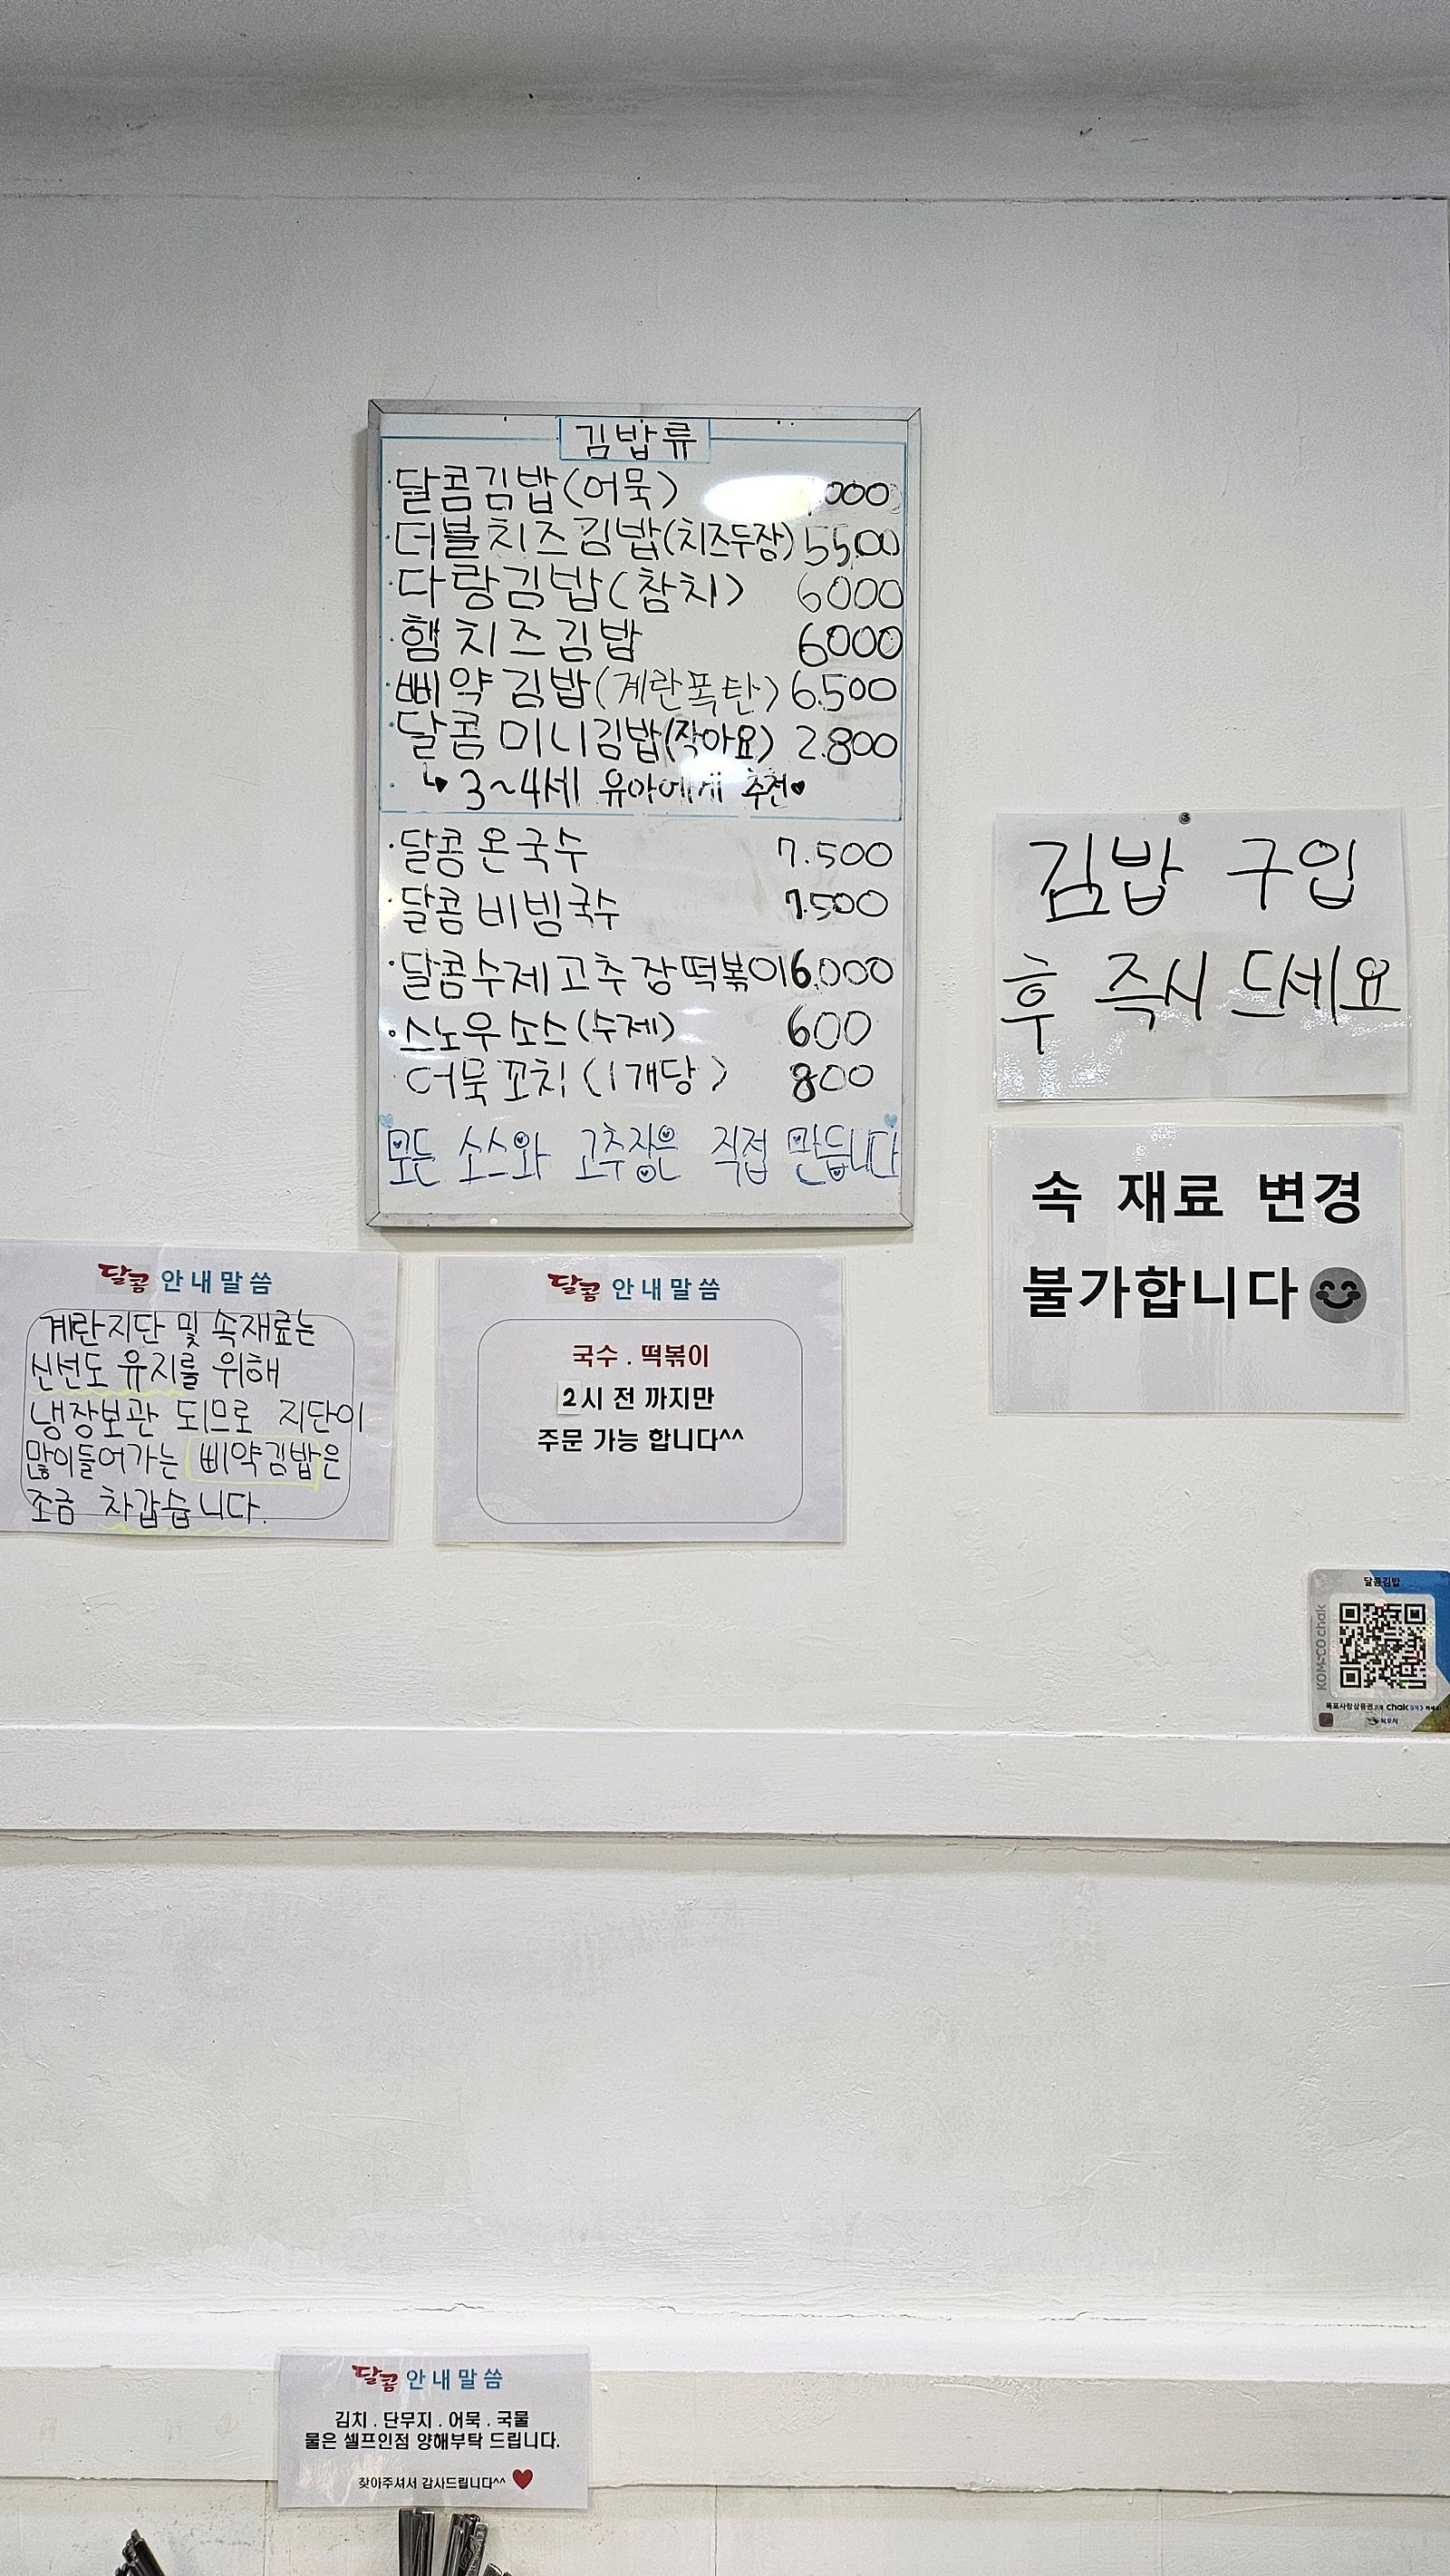 김밥류
·달콤김밥(어묵)
·더블치즈김밥(치즈두장) 5500
·다랑김밥(참치) 6000
·햄치즈김밥 6000
·삐약김밥(계란폭탄) 6.500
·달콤 미니김밥(작아요) 2.800
↳ 3~4세 유아에게 추천♥
·달콤 온국수 7.500
·달콤 비빔국수 7.500
·달콤수제고추장떡볶이 6.000
·스노우소스(수제) 600
어묵꼬치(1개당) 800
모든 소스와 고추장은 직접 만듭니다
김밥 구입
후 즉시 드세요
속 재료 변경
불가합니다😊
달콤 안내말씀
계란지단 및 속재료는
신선도 유지를 위해
냉장보관 되므로 지단이
많이들어가는 삐약김밥은
조금 차갑습니다.
달콤 안내말씀
국수 . 떡볶이
2시 전 까지만
주문 가능 합니다^^
달콤김밥
KOMSCO chak
목포사랑상품권 chak
목포시
달콤 안내말씀
김치 . 단무지 . 어묵 . 국물
물은 셀프인점 양해부탁 드립니다.
찾아주셔서 감사드립니다^^ ♥